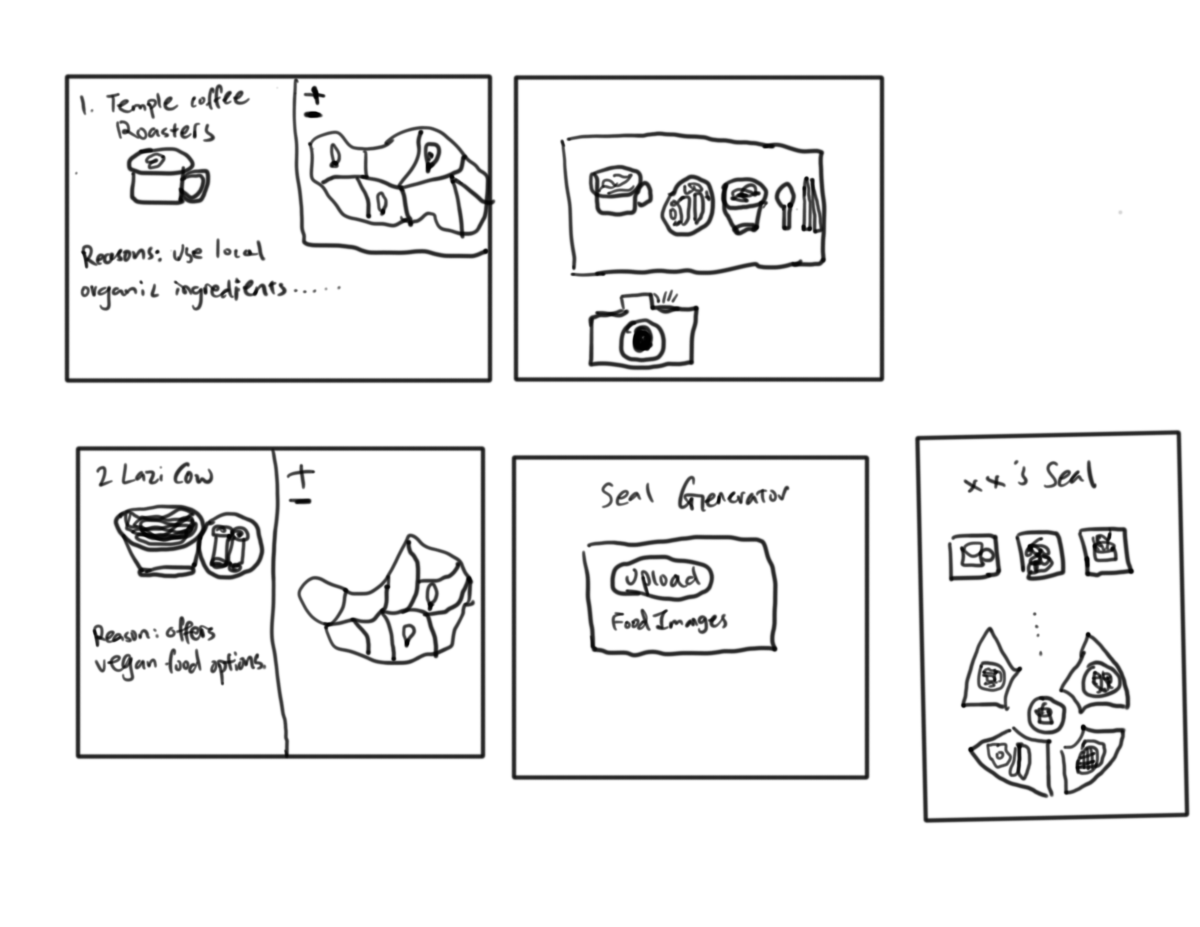 1. Temple coffee
Roasters
+
-
Reasons: use local
organic ingredients.....
2 Lazi Cow
+
-
Reason: offers
vegan food options.
Seal Generator
upload
Food Images
xx's Seal